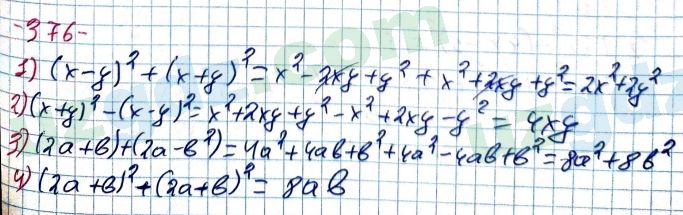 -376-
1) (x-y)² + (x+y)² = x² - 2xy + y² + x² + 2xy + y² = 2x² + 2y²
2) (x+y)² - (x-y)² = x² + 2xy + y² - x² + 2xy - y² = 4xy
3) (2a+в) + (2a-в²) = 4a² + 4aв + в² + 4a² - 4aв + в² = 8a² + 8в²
4) (2a+в)² + (2a+в)² = 8aв